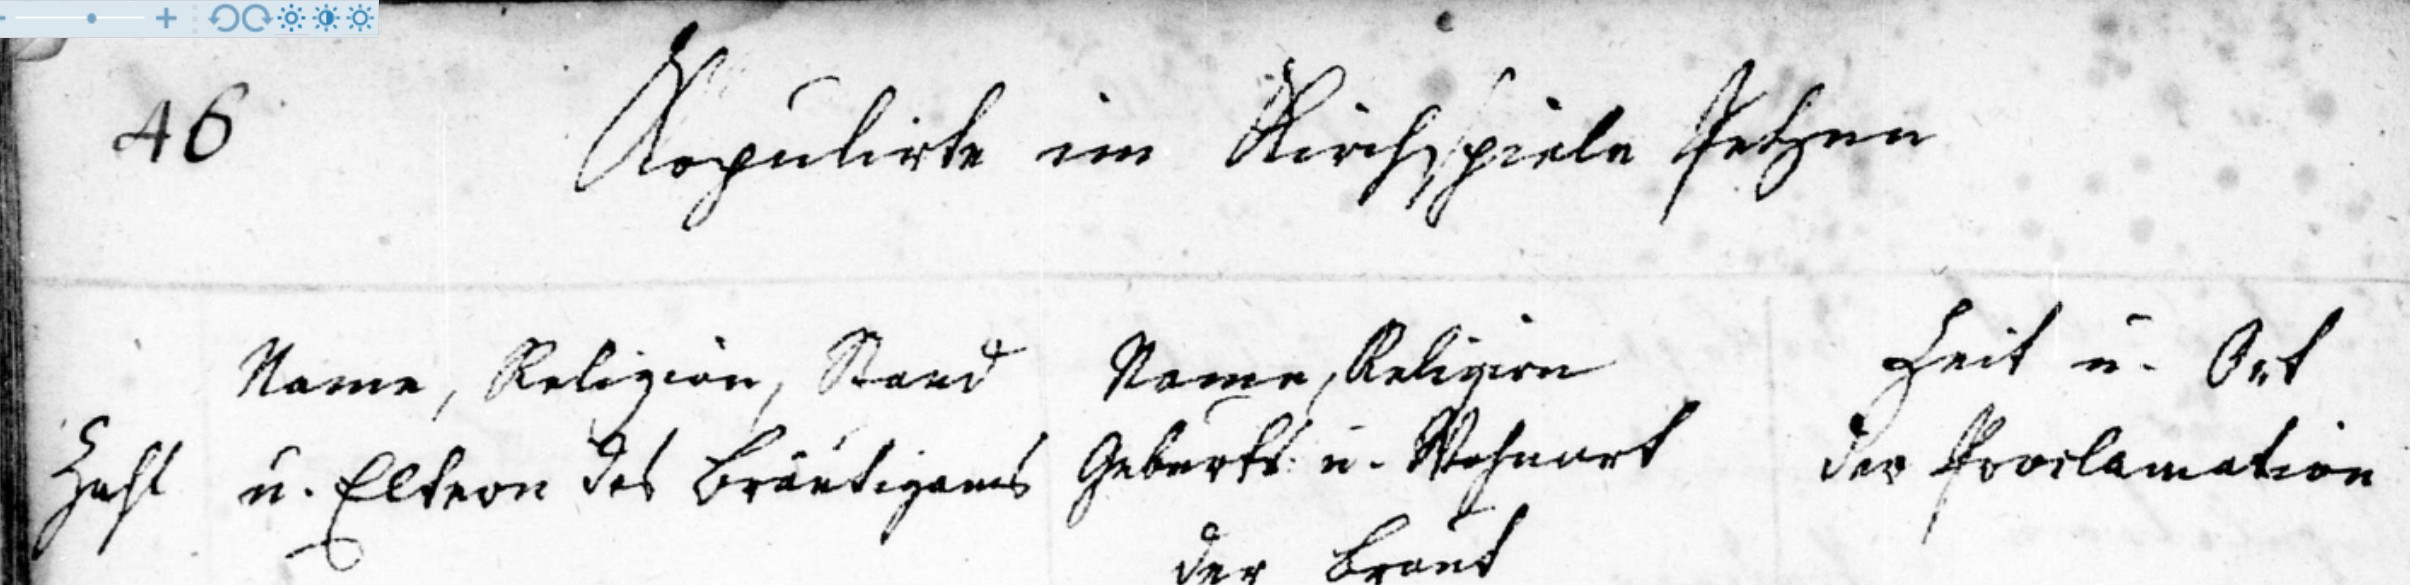 46 Kopulirte im Kirchspiele Petzen
Name, Religion, Stand
u. Eltern des Bräutigams
Zahl
Name, Religion
Geburts u. Wohnort
der Braut
Zeit u. Ort
der Proclamation